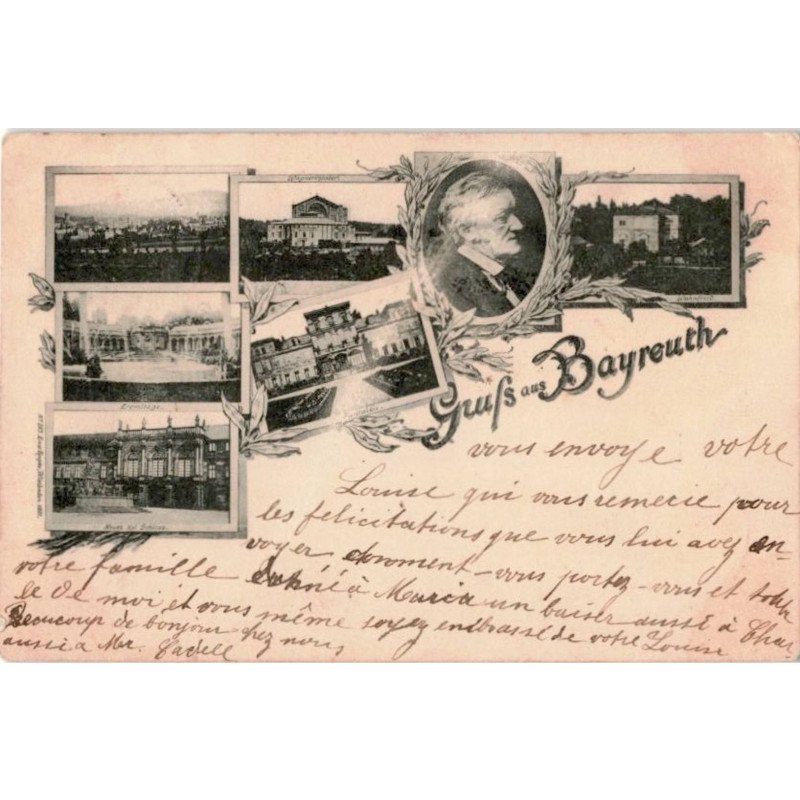 Wagnertheater.
Wahnfried
Eremitage.
Neues Kgl. Schloss.
Gruſs aus Bayreuth
vous envoye votre
Louise qui vous remerie pour
les felicitations que vous lui avez en-
voyer comment-vous portez-vous et toute
votre famille à Maria un baiser aussi à Char
le de moi et vous même soyez embrassé de votre Louise
Beaucoup de bonjour chez nous
aussi à Mr.